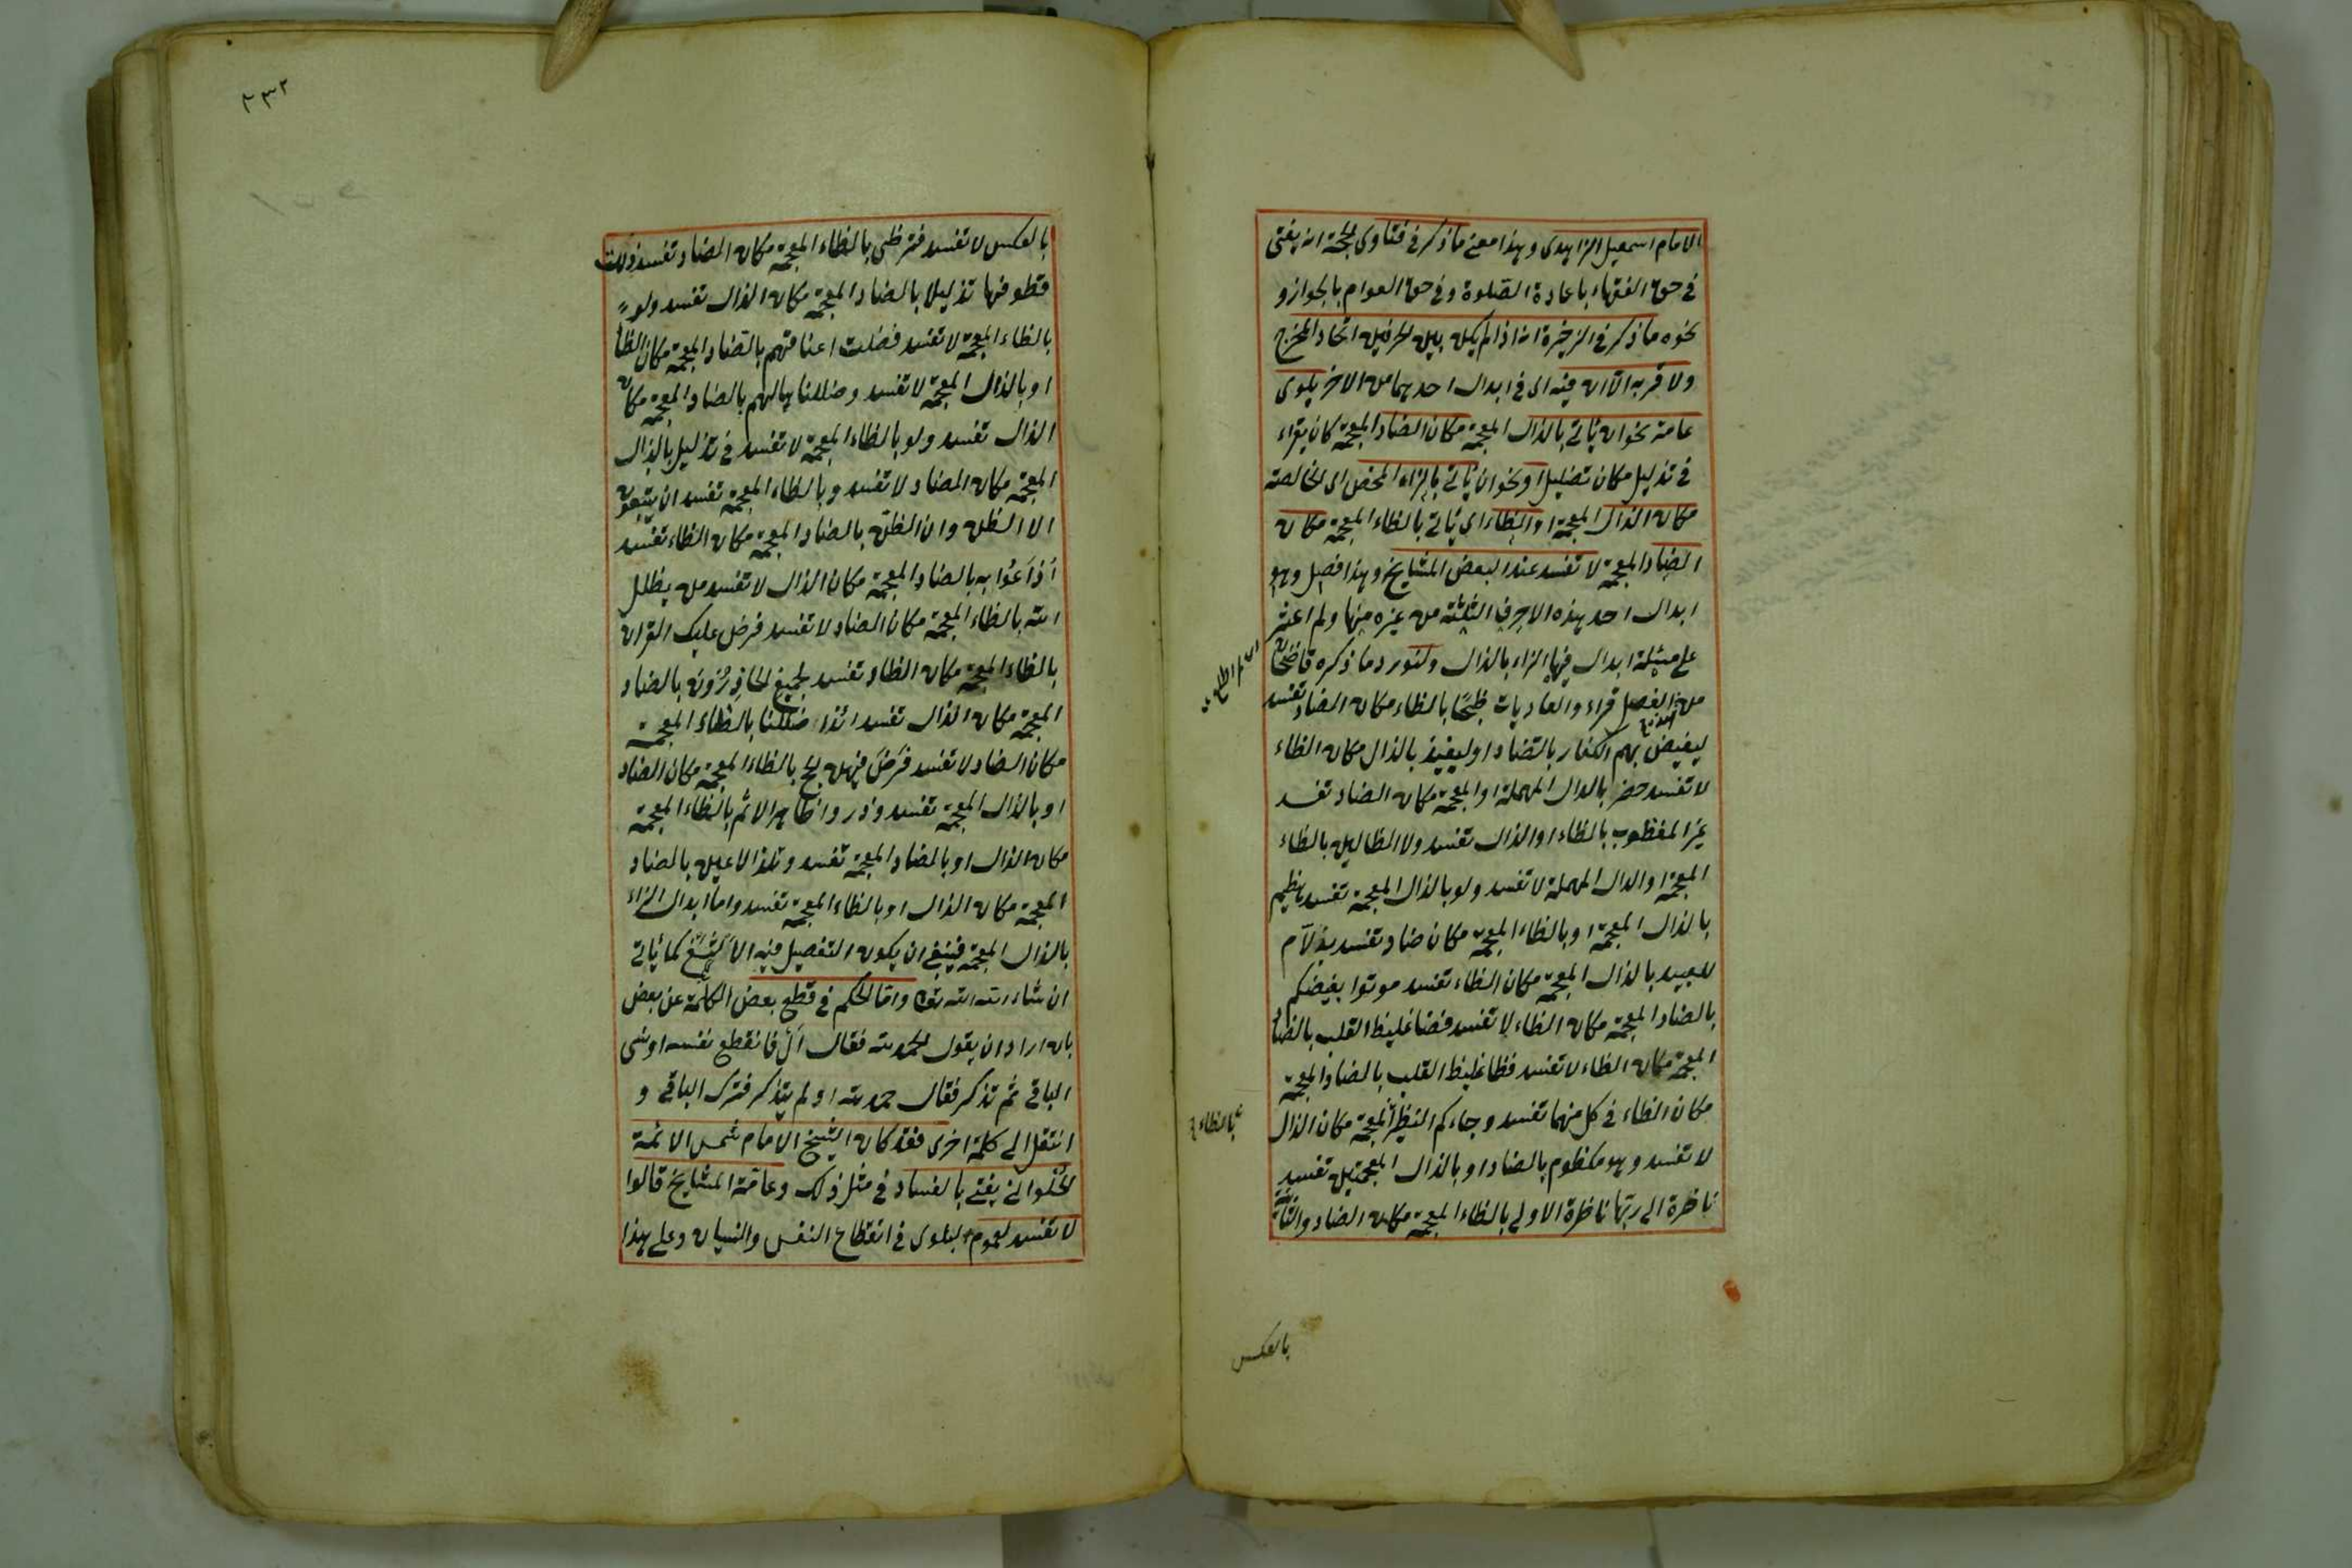 الامام اسمعيل الزاهدى وهذا معنى ما ذكر فى فتاوى الحجة انه يفتى
فى حق الفقهاء باعادة الصلوة وفى حق العوام بالجواز و
نحوه ما ذكر فى الذخيرة انه اذا لم يكن بين الحرفين اتحاد المخرج
ولا قربه الا ان فيه اى فى ابدال احدهما من الاخر بلوى
عامة نحو ان يأتى بالذال المعجمة مكان الضاد المعجمة كان يقراء
فى تذليل مكان تضليل او نحو ان يأتى بالزاء المحض اى الخالصة
مكان الذال المعجمة او الظاء اى يأتى بالظاء المعجمة مكان
الضاد المعجمة لا تفسد عند البعض المشايخ وهذا فصل وهو
ابدال احد هذه الاحرف الثلثة من غيره منها ولم اعثر
على مسئلة ابدال فيها الزاء بالذال ولنورد ما ذكره قاضيخان
من الفصل قراء والعاديات ظبحا بالظاء مكان الضاد تفسد
ليغيض بهم الكفار بالضاد او ليغيذ بالذال مكان الظاء
لا تفسد حضر بالدال المهملة او المعجمة مكان الضاد تفسد
غير المغظوب بالظاء او الذال تفسد ولا الظالين بالظاء
المعجمة او الدال المهملة لا تفسد ولو بالذال المعجمة تفسد هظيم
بالذال المعجمة او بالظاء المعجمة مكان ضاد تفسد بذلام
للعبيد بالذال المعجمة مكان الظاء تفسد موتوا بغيضكم
بالضاد المعجمة مكان الظاء لا تفسد فضا غليظ القلب بالضاد
المعجمة مكان الظاء لا تفسد فظا غليظ القلب بالضاد المعجمة
مكان الظاء فى كل منهما تفسد وجاءكم النظير المعجمة مكان الذال
لا تفسد وهو مكظوم بالضاد او بالذال المعجمتين تفسد
ناظرة الى ربها ناظرة الاولى بالظاء المعجمة مكان الضاد والثانية
بالظاء
بالعكس
٢٣٢
بالعكس لا تفسد فترظى بالظاء المعجمة مكان الضاد تفسد وذللت
قطوفها تذليلا بالضاد المعجمة مكان الذال تفسد ولو
بالظاء المعجمة لا تفسد فضلت اعناقهم بالضاد المعجمة مكان الظاء
او بالذال المعجمة لا تفسد وضللناها لهم بالضاد المعجمة مكان
الذال تفسد ولو بالظاء المعجمة لا تفسد فى تذليل بالذال
المعجمة مكان الضاد لا تفسد وبالظاء المعجمة تفسد ان يتبعون
الا الظن وان الظن بالضاد المعجمة مكان الظاء تفسد
اذاعوا به بالضاد المعجمة مكان الذال لا تفسد من يظلل
الله بالظاء المعجمة مكان الضاد لا تفسد فرض عليك القران
بالظاء المعجمة مكان الظاد تفسد لجميع لحاذرون بالضاد
المعجمة مكان الذال تفسد ائذا ضللنا بالظاء المعجمة
مكان الضاد لا تفسد فرض فيهن الحج بالظاء المعجمة مكان الضاد
او بالذال المعجمة تفسد وذروا ظاهر الاثم بالظاء المعجمة
مكان الذال او بالضاد المعجمة تفسد وتلذ الاعين بالضاد
المعجمة مكان الذال او بالظاء المعجمة تفسد واما ابدال الزاء
بالذال المعجمة فينبغى ان يكون التفصيل فيه الالثغ كما يأتى
ان شاء الله الله تعالى واما الحكم فى قطع بعض الكلمة عن بعض
بان اراد ان يقول الحمد لله فقال أل فانقطع نفسه او نسى
الباقى ثم تذكر فقال حمد لله او لم يتذكر فترك الباقى و
انتقل الى كلمة اخرى فقد كان الشيخ الامام شمس الائمة
الحلوانى يفتى بالفساد فى مثل ذلك وعامة المشايخ قالوا
لا تفسد لعموم البلوى فى انقطاع النفس والنسيان وعلى هذا